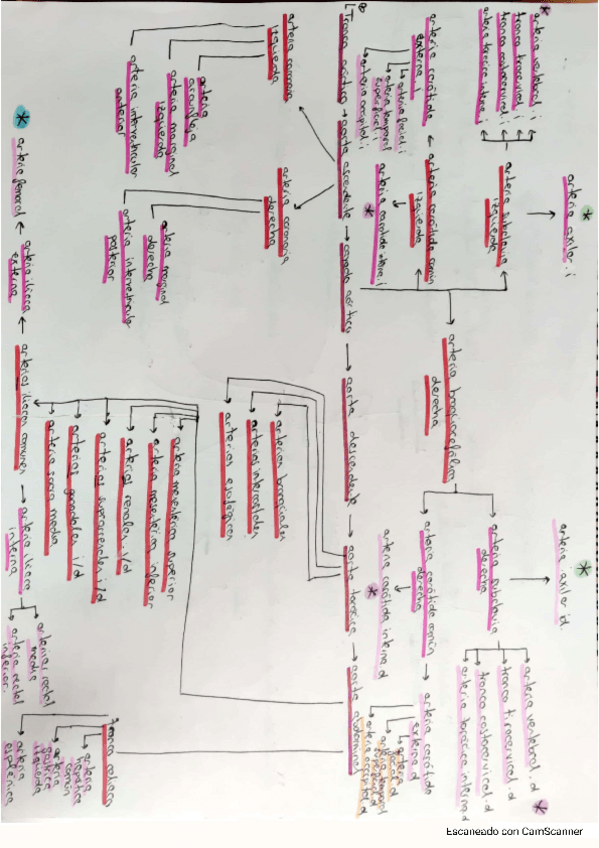 arteria vertebral.i
tronco tirocervical.i
tronco costocervical.i
arteria torácica interna.i
arteria axilar.i
arteria subclavia
izquierda
arteria carótida
externa.i
arteria facial.i
arteria temporal
superficial.i
arteria occipital.i
arteria carótida común
izquierda
arteria carótida interna.i
Tronco aórtico
aorta ascendente
cayado aórtico
aorta descendente
aorta torácica
aorta abdominal
arteria coronaria
izquierda
arteria
circunfleja
arteria marginal
izquierda
arteria interventricular
anterior
arteria coronaria
derecha
arteria marginal
derecha
arteria interventricular
posterior
arteria braquiocefálica
derecha
arteria axilar.d
arteria subclavia
derecha
arteria vertebral.d
tronco tirocervical.d
tronco costocervical.d
arteria torácica interna.d
arteria carótida común
derecha
arteria carótida interna.d
arteria carótida
externa.d
arteria
facial.d
arteria temporal
superficial.d
arteria occipital.d
arterias bronquiales
arterias intercostales
arterias esofágicas
arteria mesentérica superior
arteria mesentérica inferior
arterias renales i/d
arterias suprarrenales i/d
arterias gonadales i/d
arteria sacra media
arterias ilíacas comunes
arteria ilíaca
externa
arteria femoral
arteria ilíaca
interna
arterias rectal
media
arterias rectal
inferior.
Tronco celíaco
arteria
hepática
común
arteria
gástrica
izquierda
arteria
esplénica
Escaneado con CamScanner